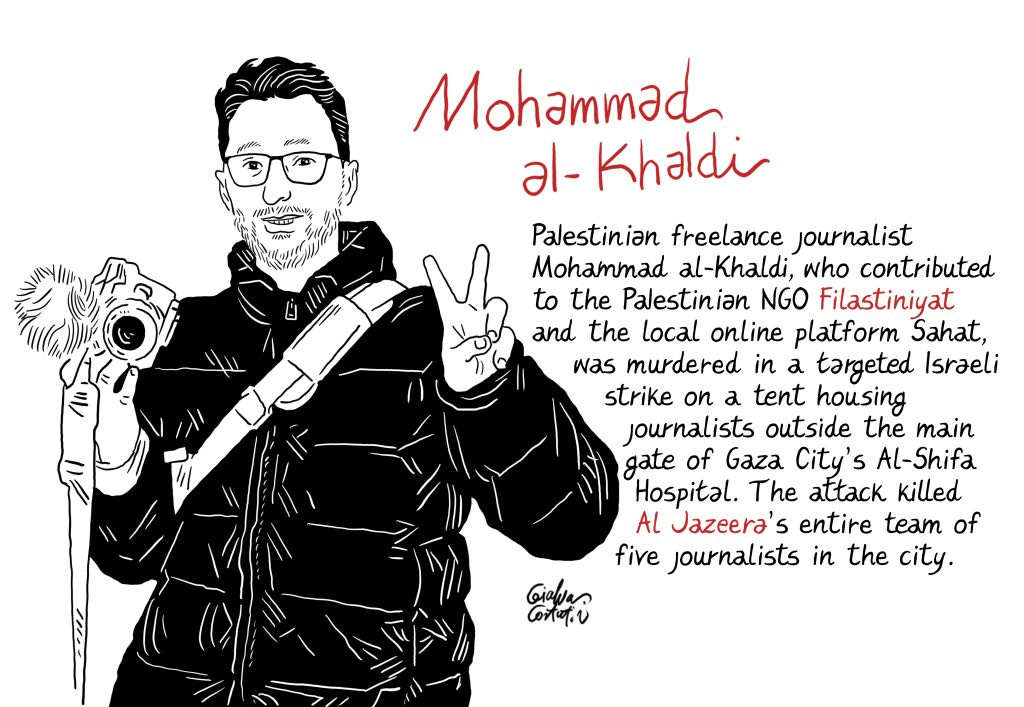 Mohammad
al-Khaldi
Palestinian freelance journalist
Mohammad al-Khaldi, who contributed
to the Palestinian NGO Filastiniyat
and the local online platform Sahat,
was murdered in a targeted Israeli
strike on a tent housing
journalists outside the main
gate of Gaza City's Al-Shifa
Hospital. The attack killed
Al Jazeera's entire team of
five journalists in the city.